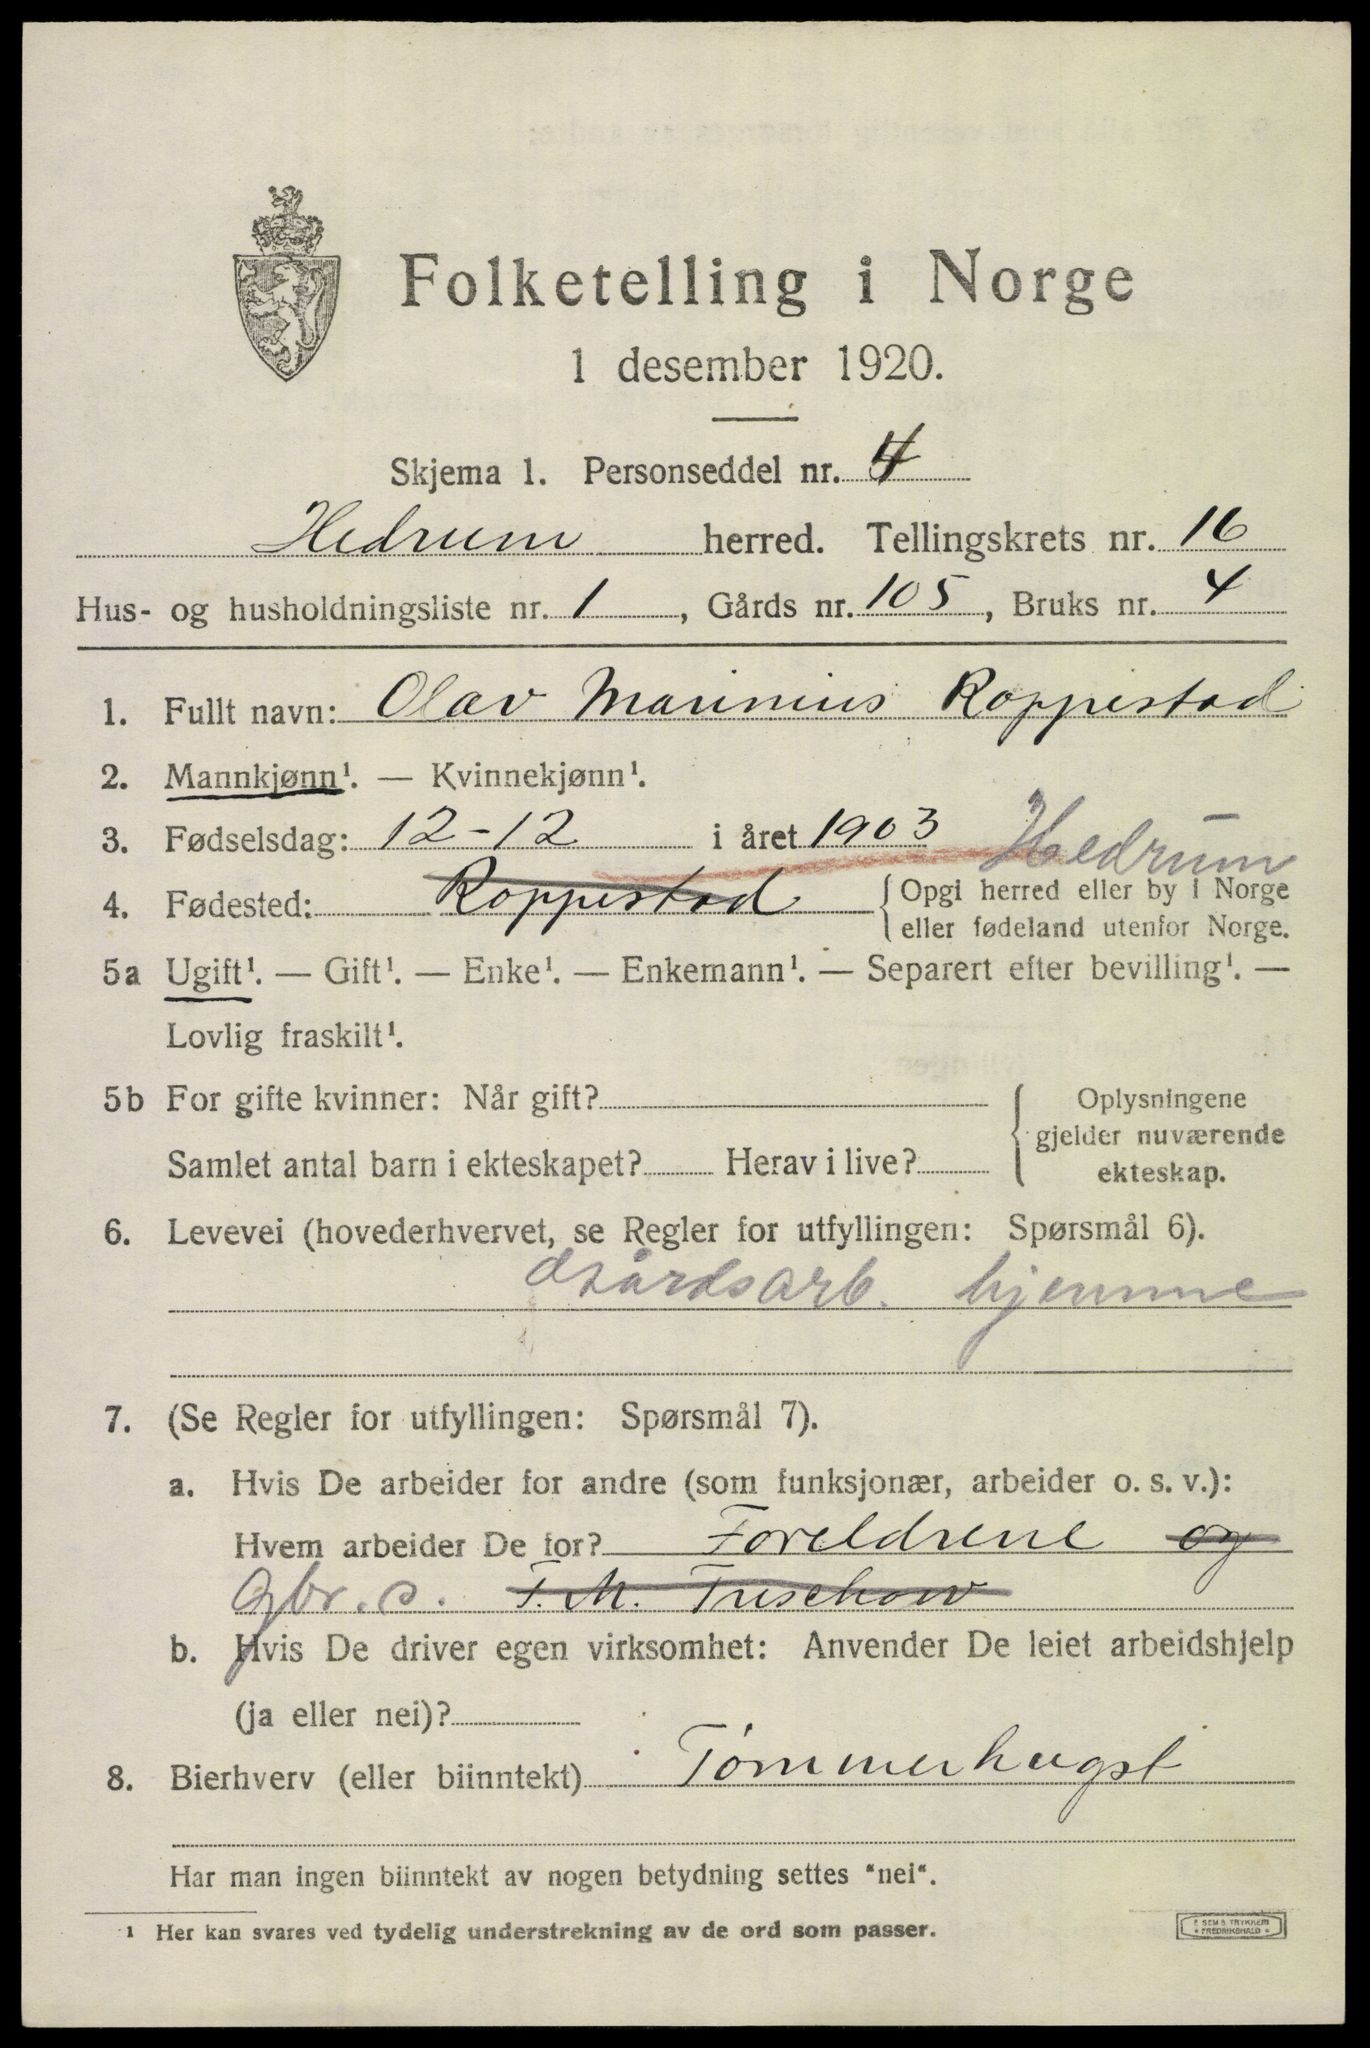 Folketelling i Norge
1 desember 1920.
Skjema 1. Personseddel nr. 4
Hedrum herred. Tellingskrets nr. 16
Hus- og husholdningsliste nr. 1, Gårds nr. 105, Bruks nr. 4
1. Fullt navn: Olav Marinius Roppestad
2. Mannkjønn¹. — Kvinnekjønn¹.
3. Fødselsdag: 12-12 i året 1903 Hedrum
4. Fødested: Roppestad { Opgi herred eller by i Norge
eller fødeland utenfor Norge.
5a Ugift¹. — Gift¹. — Enke¹. — Enkemann¹. — Separert efter bevilling¹. —
Lovlig fraskilt¹.
5b For gifte kvinner: Når gift? { Oplysningene
gjelder nuværende
Samlet antal barn i ekteskapet? Herav i live? ekteskap.
6. Levevei (hovederhvervet, se Regler for utfyllingen: Spørsmål 6).
Gårdsarb. hjemme
7. (Se Regler for utfyllingen: Spørsmål 7).
a. Hvis De arbeider for andre (som funksjonær, arbeider o. s. v.):
Hvem arbeider De for? Foreldrene og
gbr. s. F. M. Treschow
b. Hvis De driver egen virksomhet: Anvender De leiet arbeidshjelp
(ja eller nei)?
8. Bierhverv (eller biinntekt) Tømmerhugst
Har man ingen biinntekt av nogen betydning settes "nei".
¹ Her kan svares ved tydelig understrekning av de ord som passer.
E. SEM'S TRYKKERI
FREDRIKSHALD